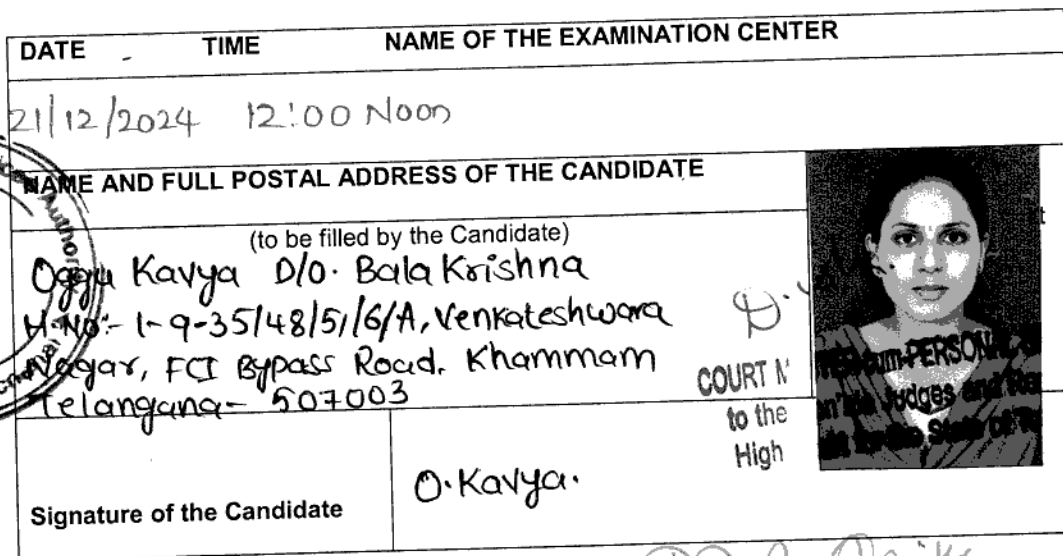 DATE - TIME NAME OF THE EXAMINATION CENTER
21/12/2024 12:00 Noon
NAME AND FULL POSTAL ADDRESS OF THE CANDIDATE
(to be filled by the Candidate)
Oggu Kavya D/O. Bala Krishna
H.No:- 1-9-35/48/51/6/A, Venkateshwara
Nagar, FCI Bypass Road, Khammam
Telangana- 507003
COURT M
to the
High
PERSONAL
Judges and
for the State of
Signature of the Candidate
O.Kavya.